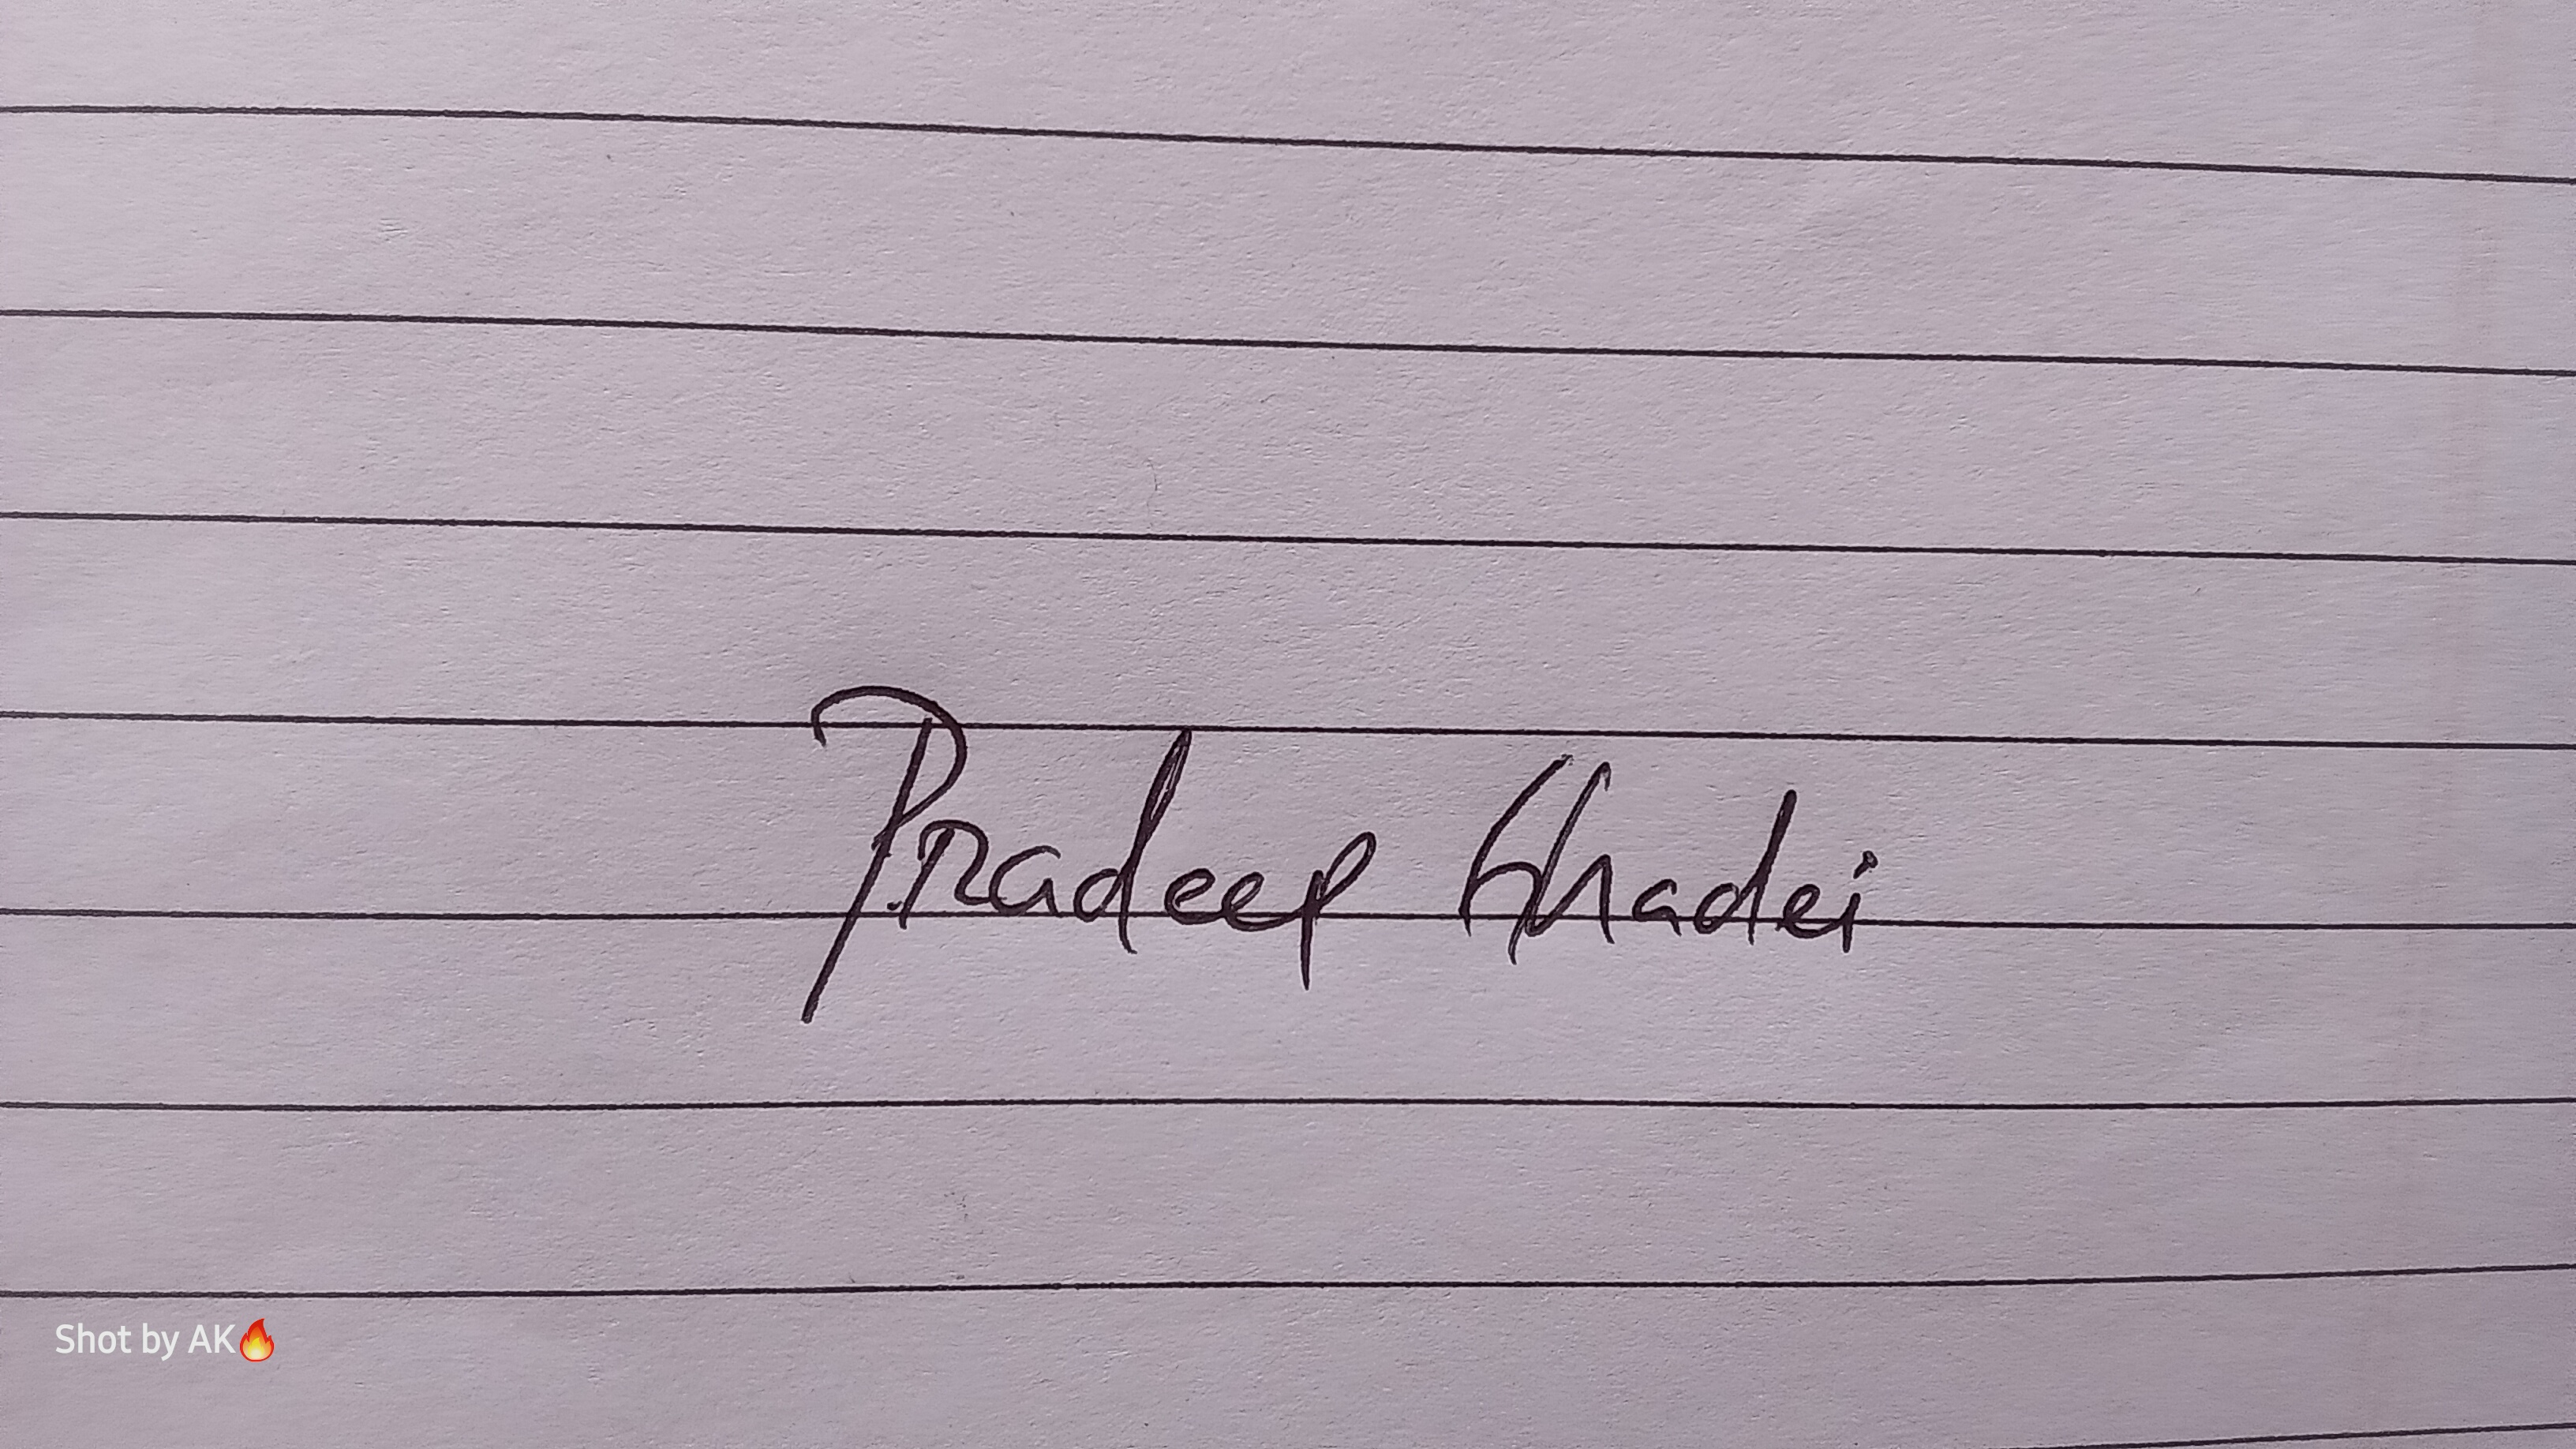 Pradeep Ghadei
Shot by AK🔥